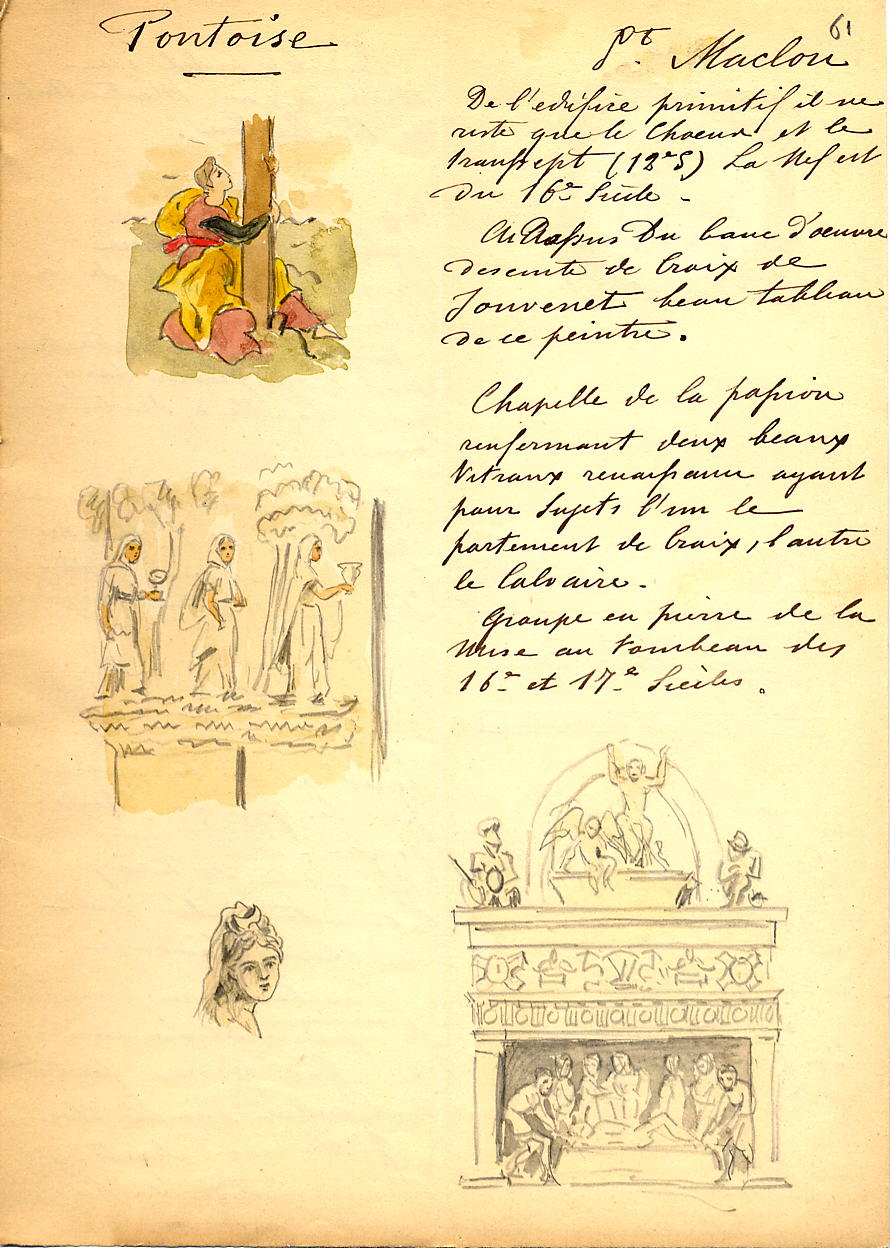 Pontoise
61
St. Maclou
De l'edifice primitif il ne
reste que le Choeur et le
transept (12e S) La Nef est
du 16e Siècle -
Au Dessus Du banc d'oeuvre
descente de Croix de
Jouvenet beau tableau
de ce peintre.
Chapelle de la passion
renfermant deux beaux
Vitraux renaissance ayant
pour Sujets l'un le
portement de Croix, l'autre
le Calvaire.
Groupe en pierre de la
Mise au Tombeau des
16e et 17e Siècles.